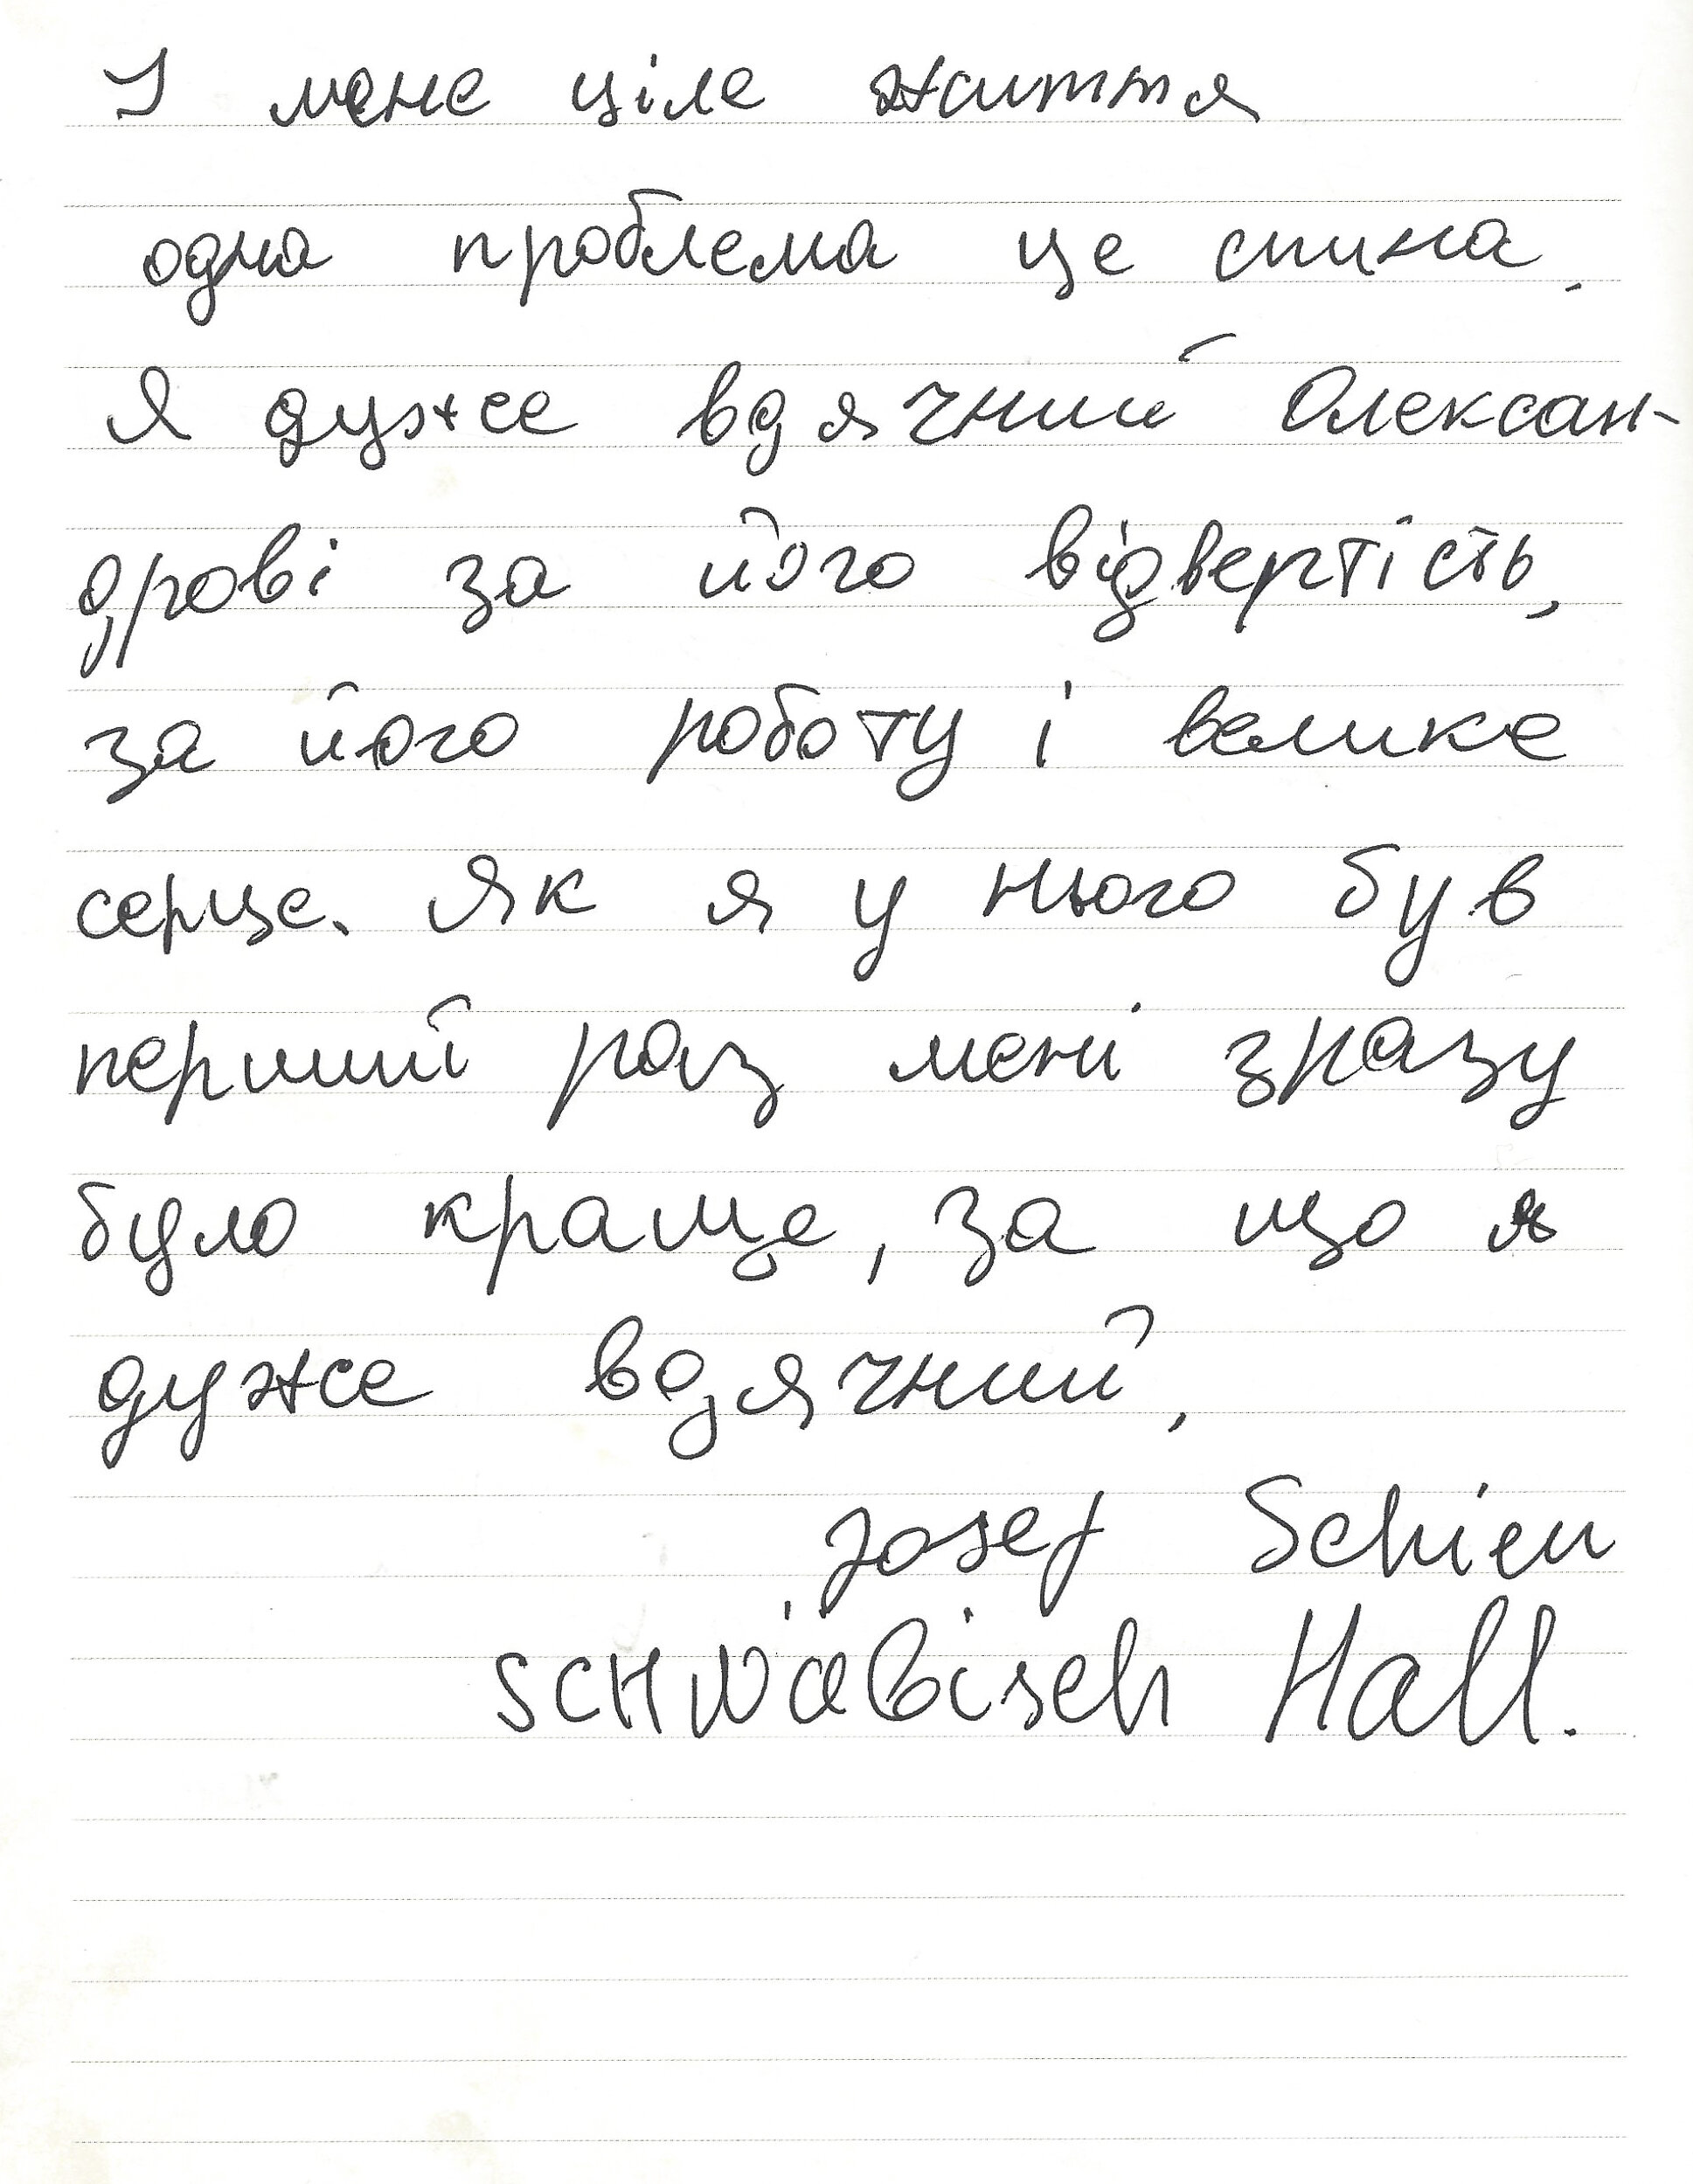 У мене ціле життя
одна проблема це спина.
Я дуже вдячний Олексан-
дрові за його відвертість,
за його роботу і велике
серце. Як я у нього був
перший раз мені зразу
було краще, за що я
дуже вдячний,
Josef Schien
SCHWäbisch Hall.